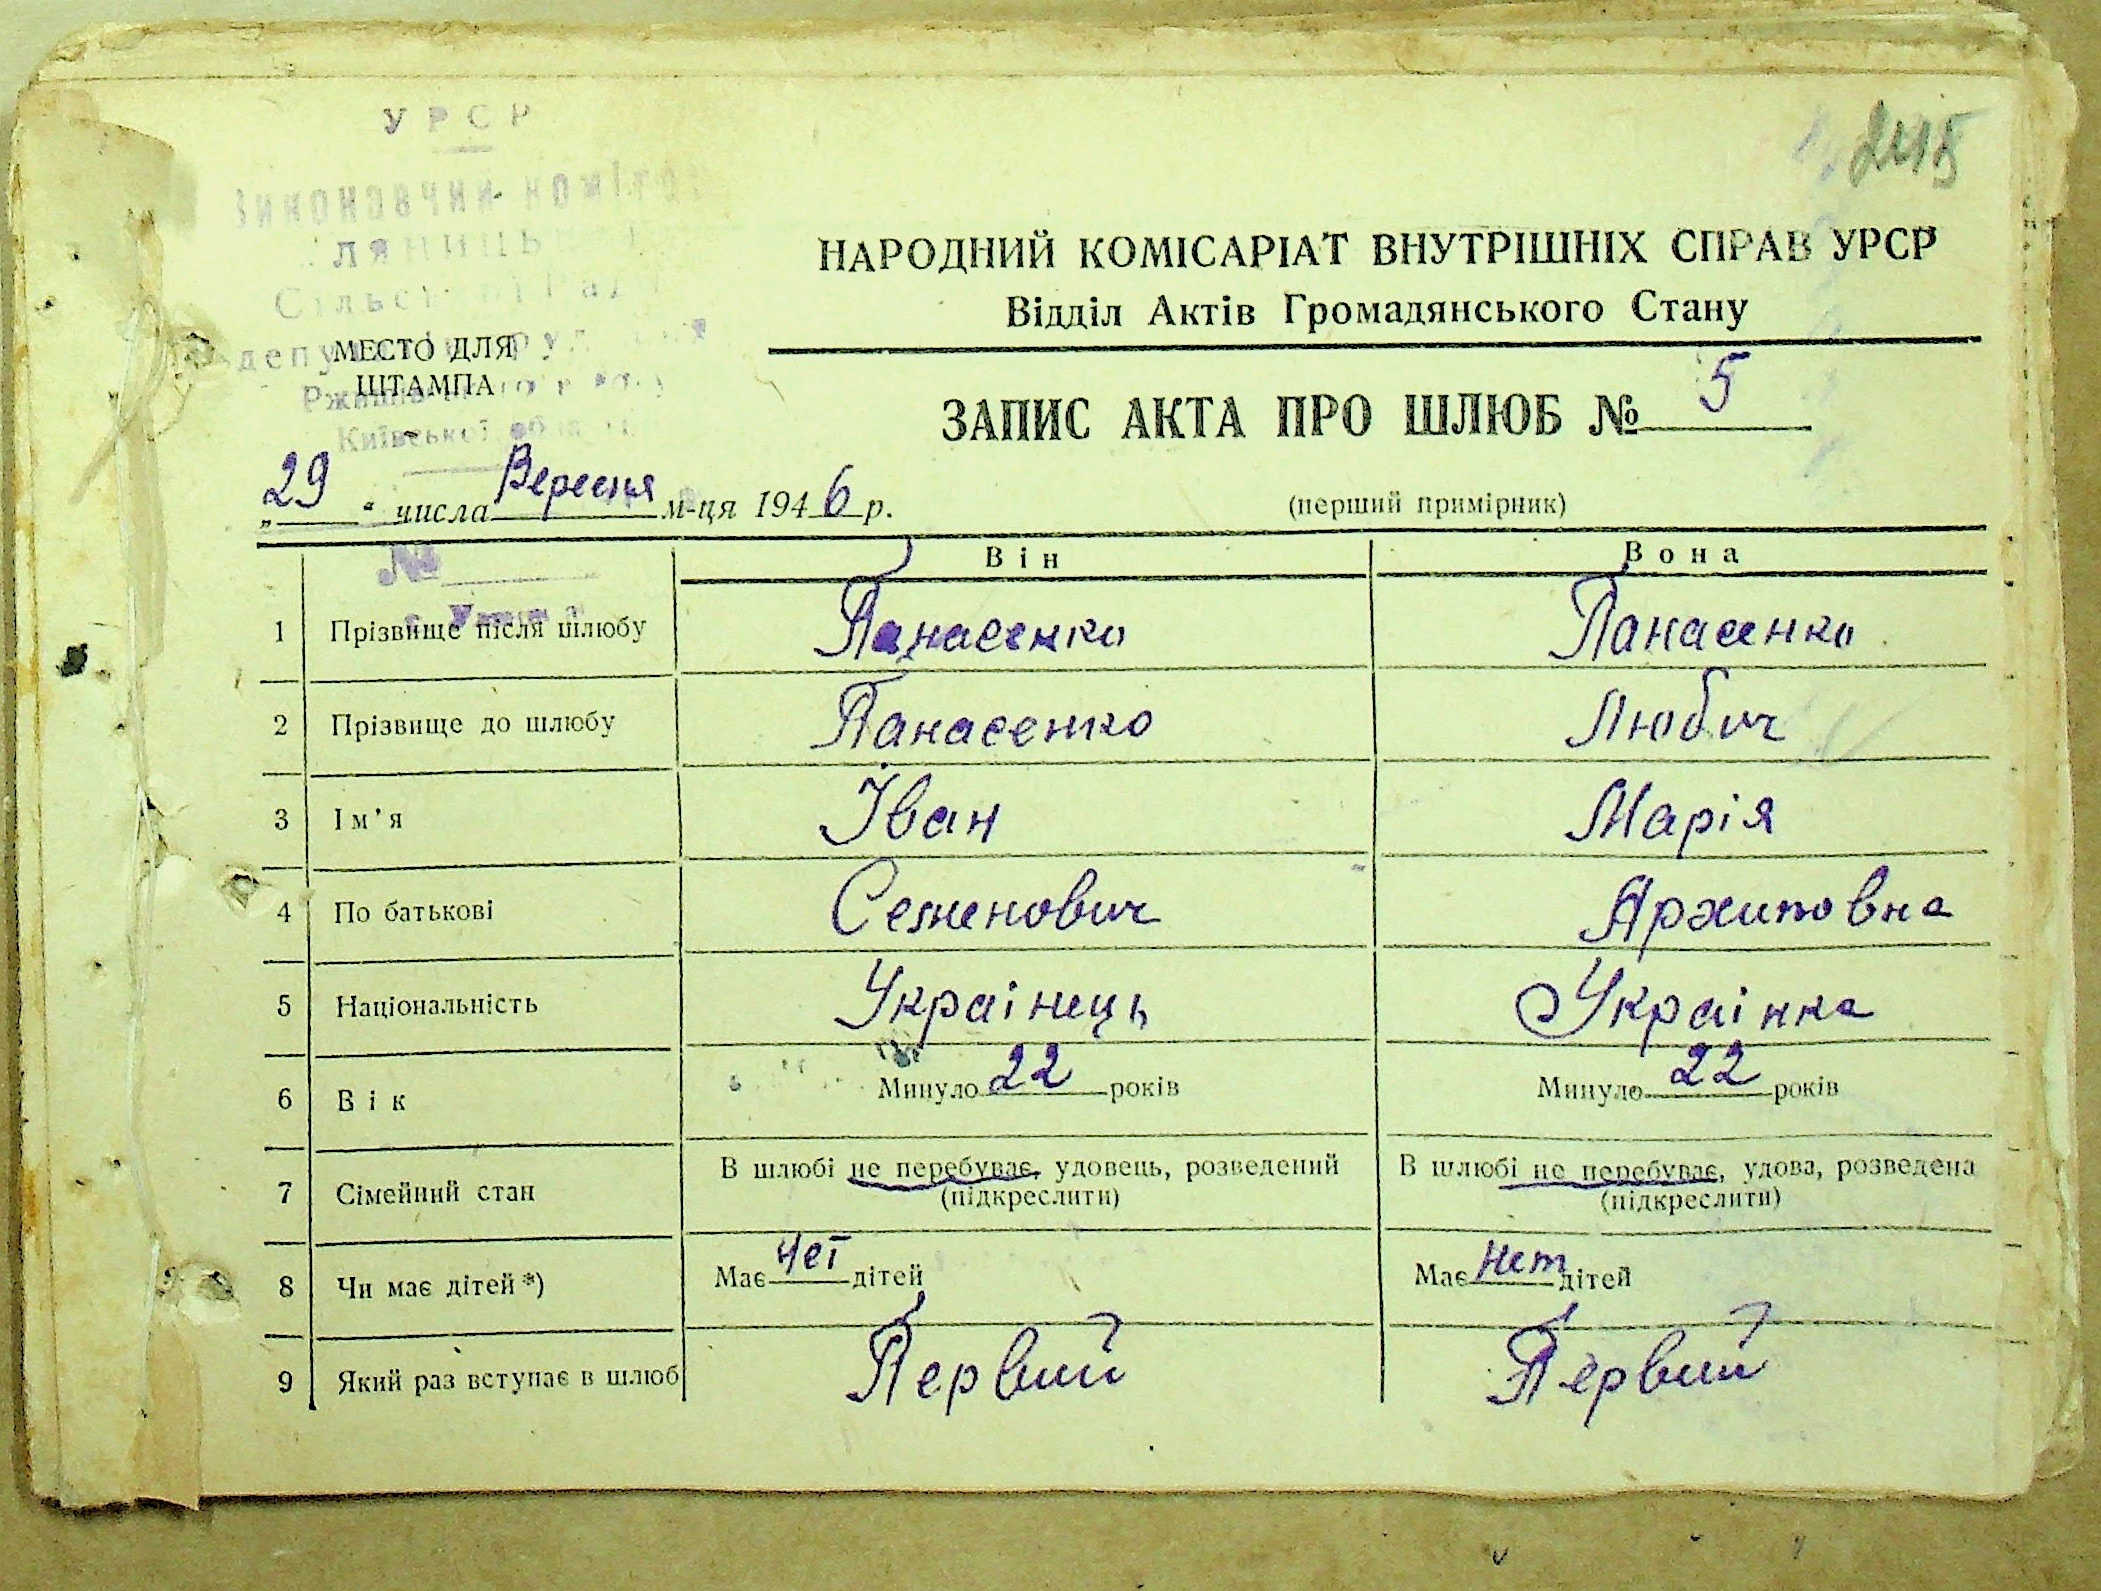 УРСР
245
Виконавчий комітет
НАРОДНИЙ КОМІСАРІАТ ВНУТРІШНІХ СПРАВ УРСР
Відділ Актів Громадянського Стану
МЕСТО ДЛЯ
ШТАМПА
Київської
ЗАПИС АКТА ПРО ШЛЮБ № 5
„29“ числа Вересня м-ця 1946 р.
(перший примірник)
№
Він Вона
1 Прізвище після шлюбу Панасенко Панасенко
2 Прізвище до шлюбу Панасенко Любич
3 Ім'я Іван Марія
4 По батькові Семенович Архиповна
5 Національність Украінець Украінка
6 Вік Минуло 22 років Минуло 22 років
7 Сімейний стан В шлюбі не перебуває, удовець, розведений В шлюбі не перебуває, удова, розведена
(підкреслити) (підкреслити)
8 Чи має дітей*) Має нет дітей Має нет дітей
9 Який раз вступає в шлюб Первий Первий